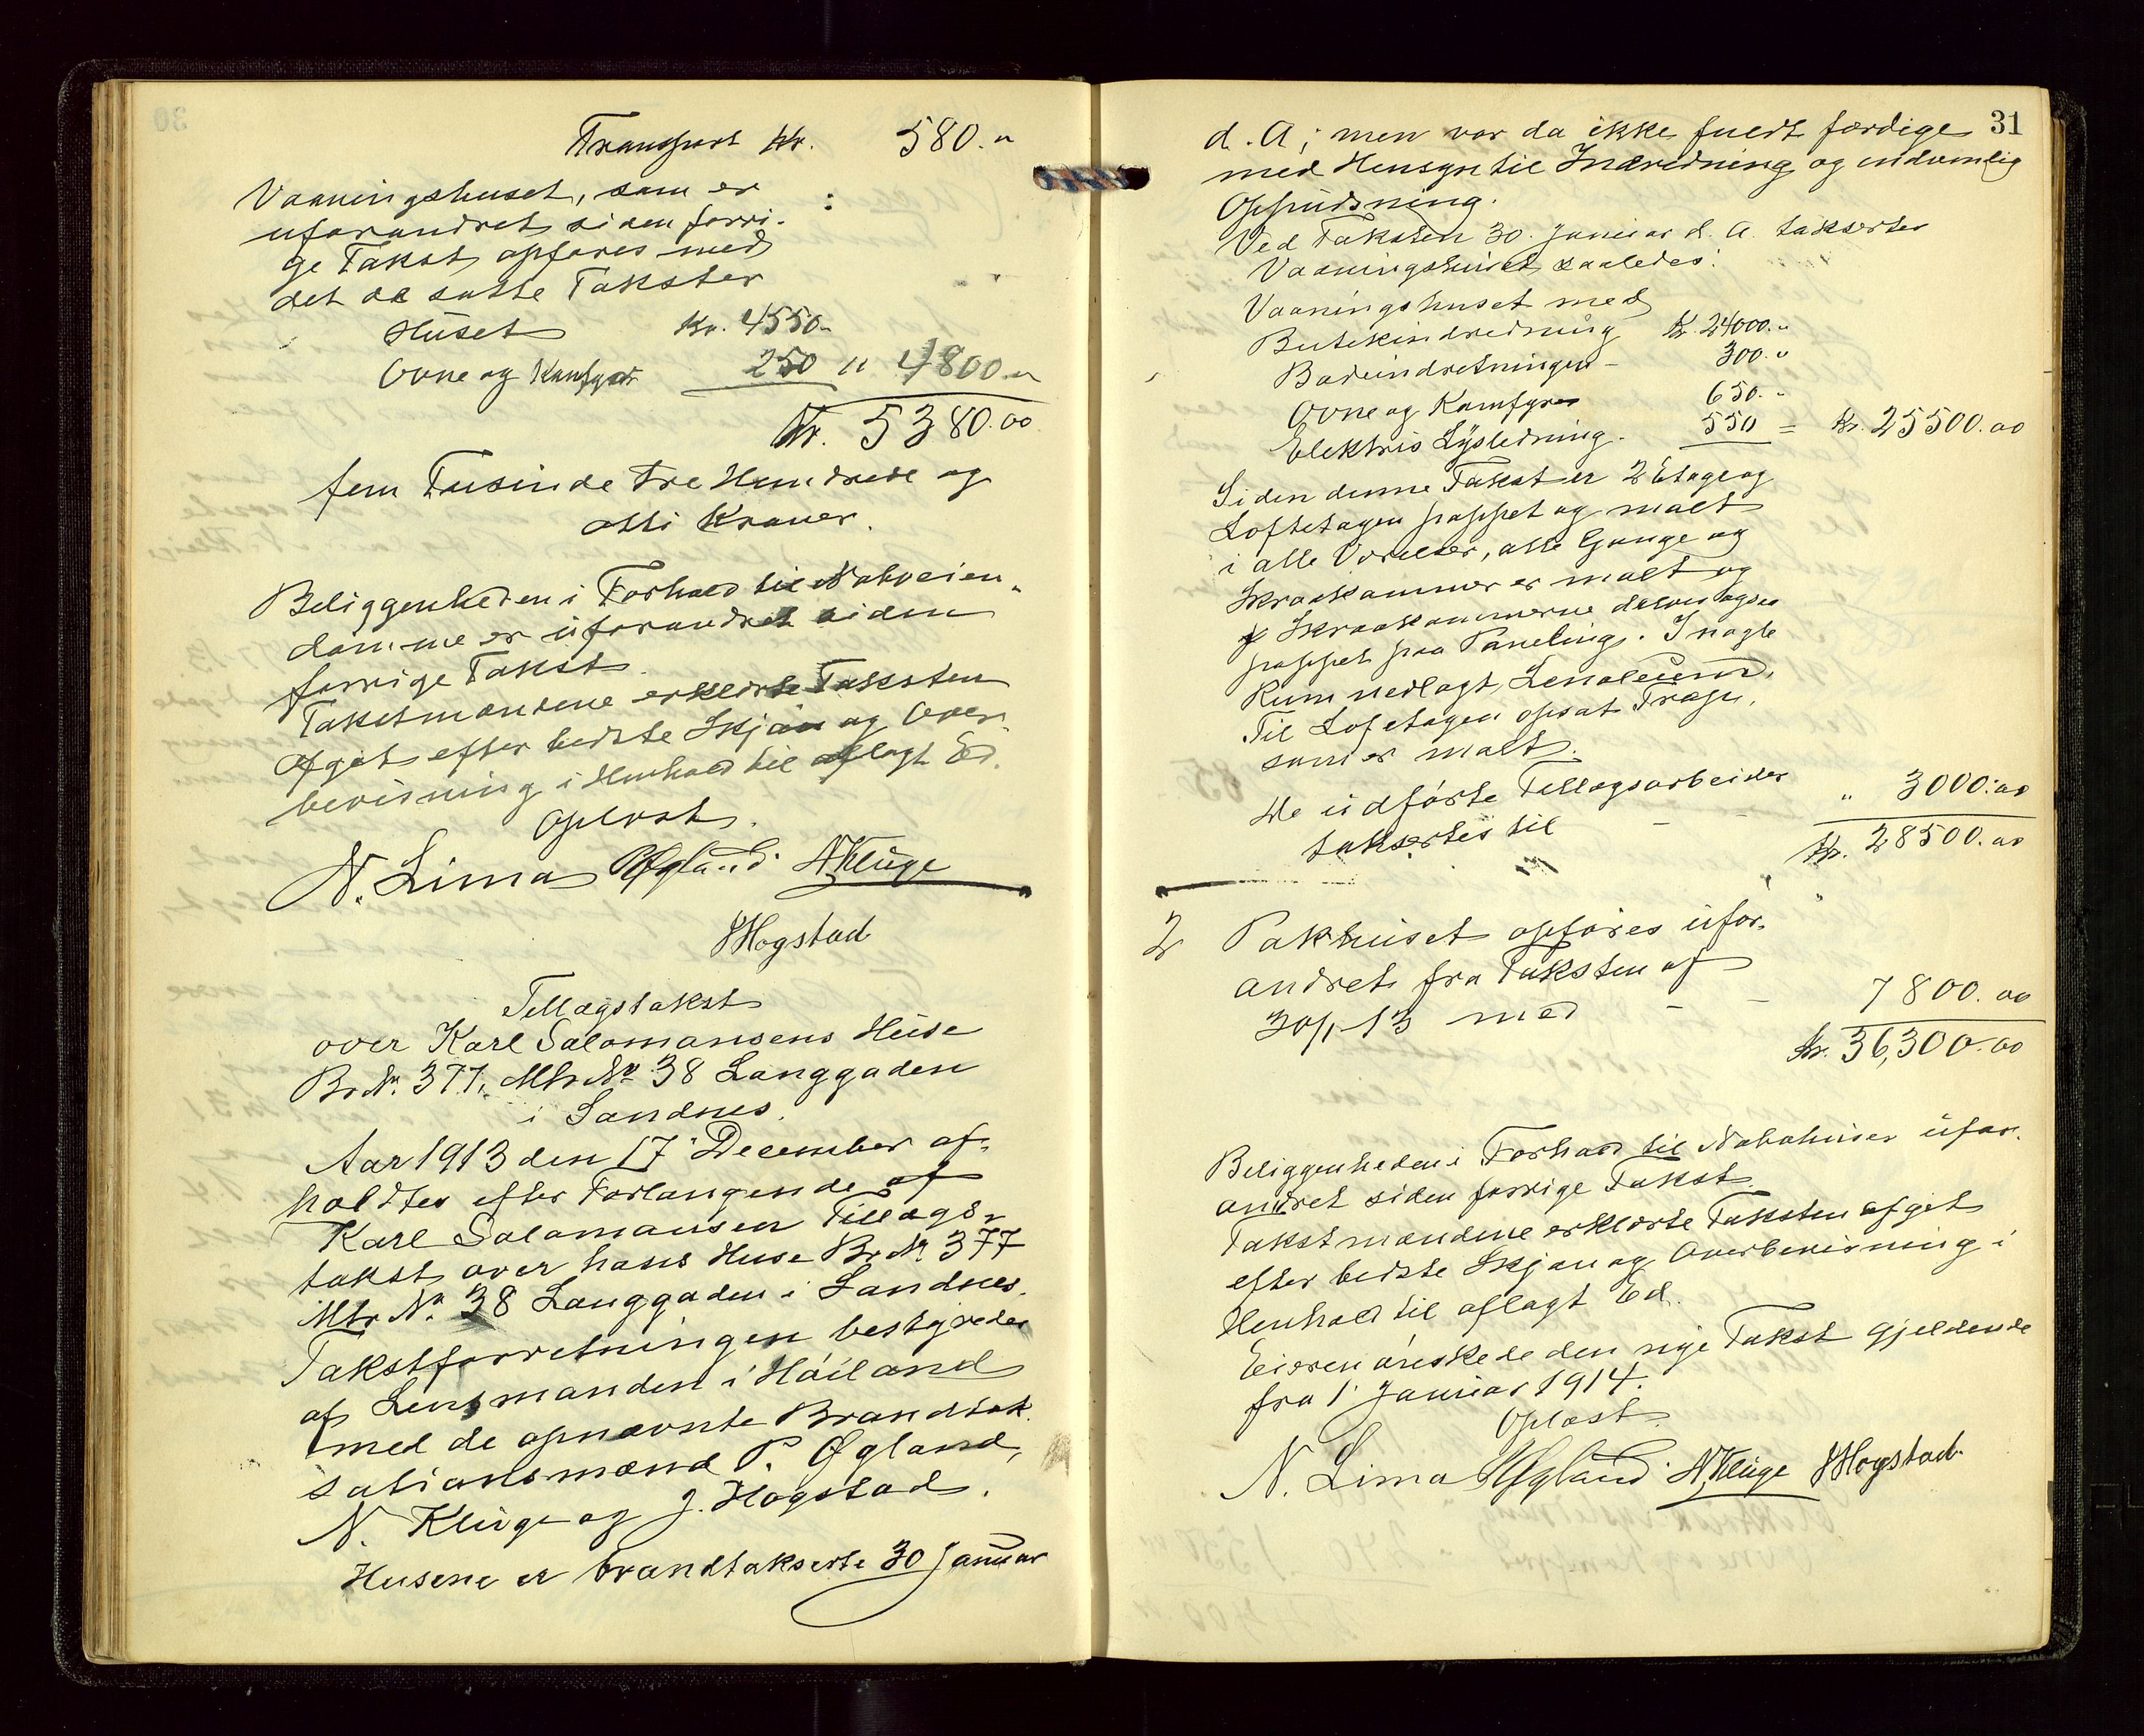 Transport Kr. 580.„
Vaaningshuset, som er :
uforandret siden forri-
ge Takst opføres med
det da satte Takster
Huset Kr. 4550.-
Ovne og Komfyr 250 „ 4800.„
Kr. 5380.00
fem Tusinde tre Hundrede og
otti Kroner.
Beliggenheden i Forhold til Naboeien-
domme er uforandret siden
forrige Takst.
Takstmændene erklærte Taksten
afgit efter bedste Skjøn og Over-
bevisning i Henhold til aflagt Ed.
Oplæst.
N. Lima POgland. N. Kluge
JHogstad
Tillægstakst
over Karl Salomonsens Huse
Br.Nr. 377, Mtr.Nr 38 Langgaden
i Sandnes.
Aar 1913 den 17 December af-
holdtes efter Forlangende af
Karl Salomonsen Tillægs-
takst over hans Huse Br.Nr. 377
Mtr Nr. 38 Langgaden i Sandnes.
Takstforretningen bestyredes
af Lensmanden i Høiland
med de opnævnte Brandtak-
sationsmænd P. Øgland,
N. Kluge og J. Hogstad.
Husene er brandtakserte 30 Januar
31
d. A; men var da ikke fuldt færdige
med Hensyn til Indredning og indvendig
Oppudsning.
Ved Taksten 30. Januar d. A. taksertes
Vaaningshuset saaledes:
Vaaningshuset med
Butikindredning Kr. 24000.„
Badeindretningen - 300.„
Ovne og Komfyrer 650.„
Elektris Lysledning. 550 = Kr. 25500.00
Siden denne Takst er 2 Etage og
Loftetagen pappet og malt
i alle Værelser, alle Gange og
Skraakammer er malt og
Skraakammerne desuden ogsaa
pappet paa Paneling. I nogle
Rum nedlagt Lenoleum.
Til Loftetagen opsat Trapp,
som er malt.
De udførte Tillægsarbeider
taksertes til - - „ 3000.00
Kr. 28500.00
2 Pakhuset opføres ufor-
andret fra Taksten af
30/1-13 med - - 7800.00
Kr. 36,300.00
Beliggenheden i Forhold til Nabohuser ufor-
andret siden forrige Takst.
Takstmændene erklærte Taksten afgit
efter bedste Skjøn og Overbevisning i
Henhold til aflagt Ed.
Eieren ønskede den nye Takst gjeldende
fra 1 Januar 1914.
Oplæst.
N. Lima POgland. N. Kluge JHogstad.